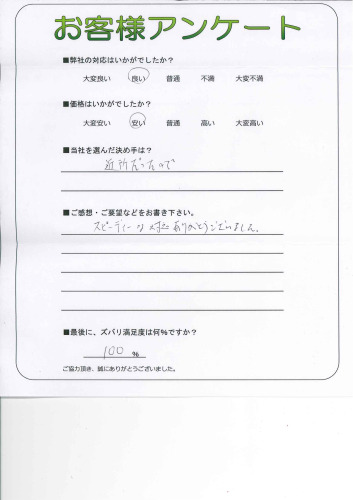 お客様アンケート
■弊社の対応はいかがでしたか？
大変良い 良い 普通 不満 大変不満
■価格はいかがでしたか？
大変安い 安い 普通 高い 大変高い
■当社を選んだ決め手は？
近所だったので
■ご感想・ご要望などをお書き下さい。
スピーディーな対応ありがとうございました。
■最後に、ズバリ満足度は何%ですか？
100 %
ご協力頂き、誠にありがとうございました。